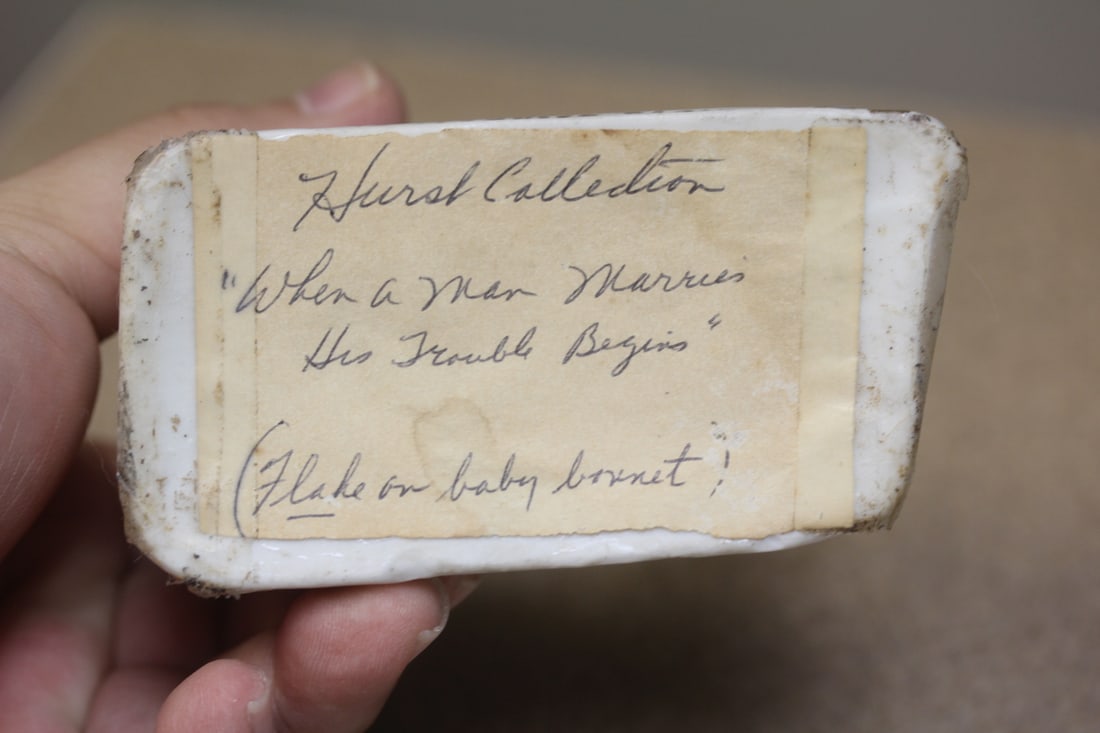 Hurst Collection
"When a Man Marries
His Trouble Begins"
(Flake on baby bonnet!